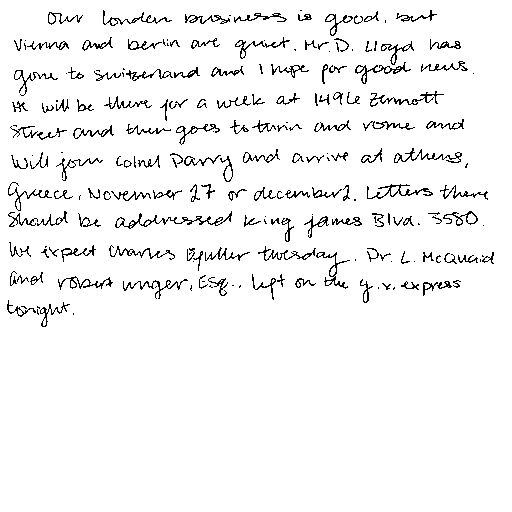 Our london business is good, but
Vienna and berlin are quiet. Mr. D. Lloyd has
gone to switzerland and I hope for good news.
He will be there for a week at 1496 Zermott
Street and then goes to turin and rome and
will join colnel Parry and arrive at athens,
Greece, November 27 or december 2. Letters there
should be addressed King james Blvd. 3580.
We expect charles Efuller tuesday. Dr. L. McQuaid
and robert unger, Esq., left on the y.x. express
tonight.